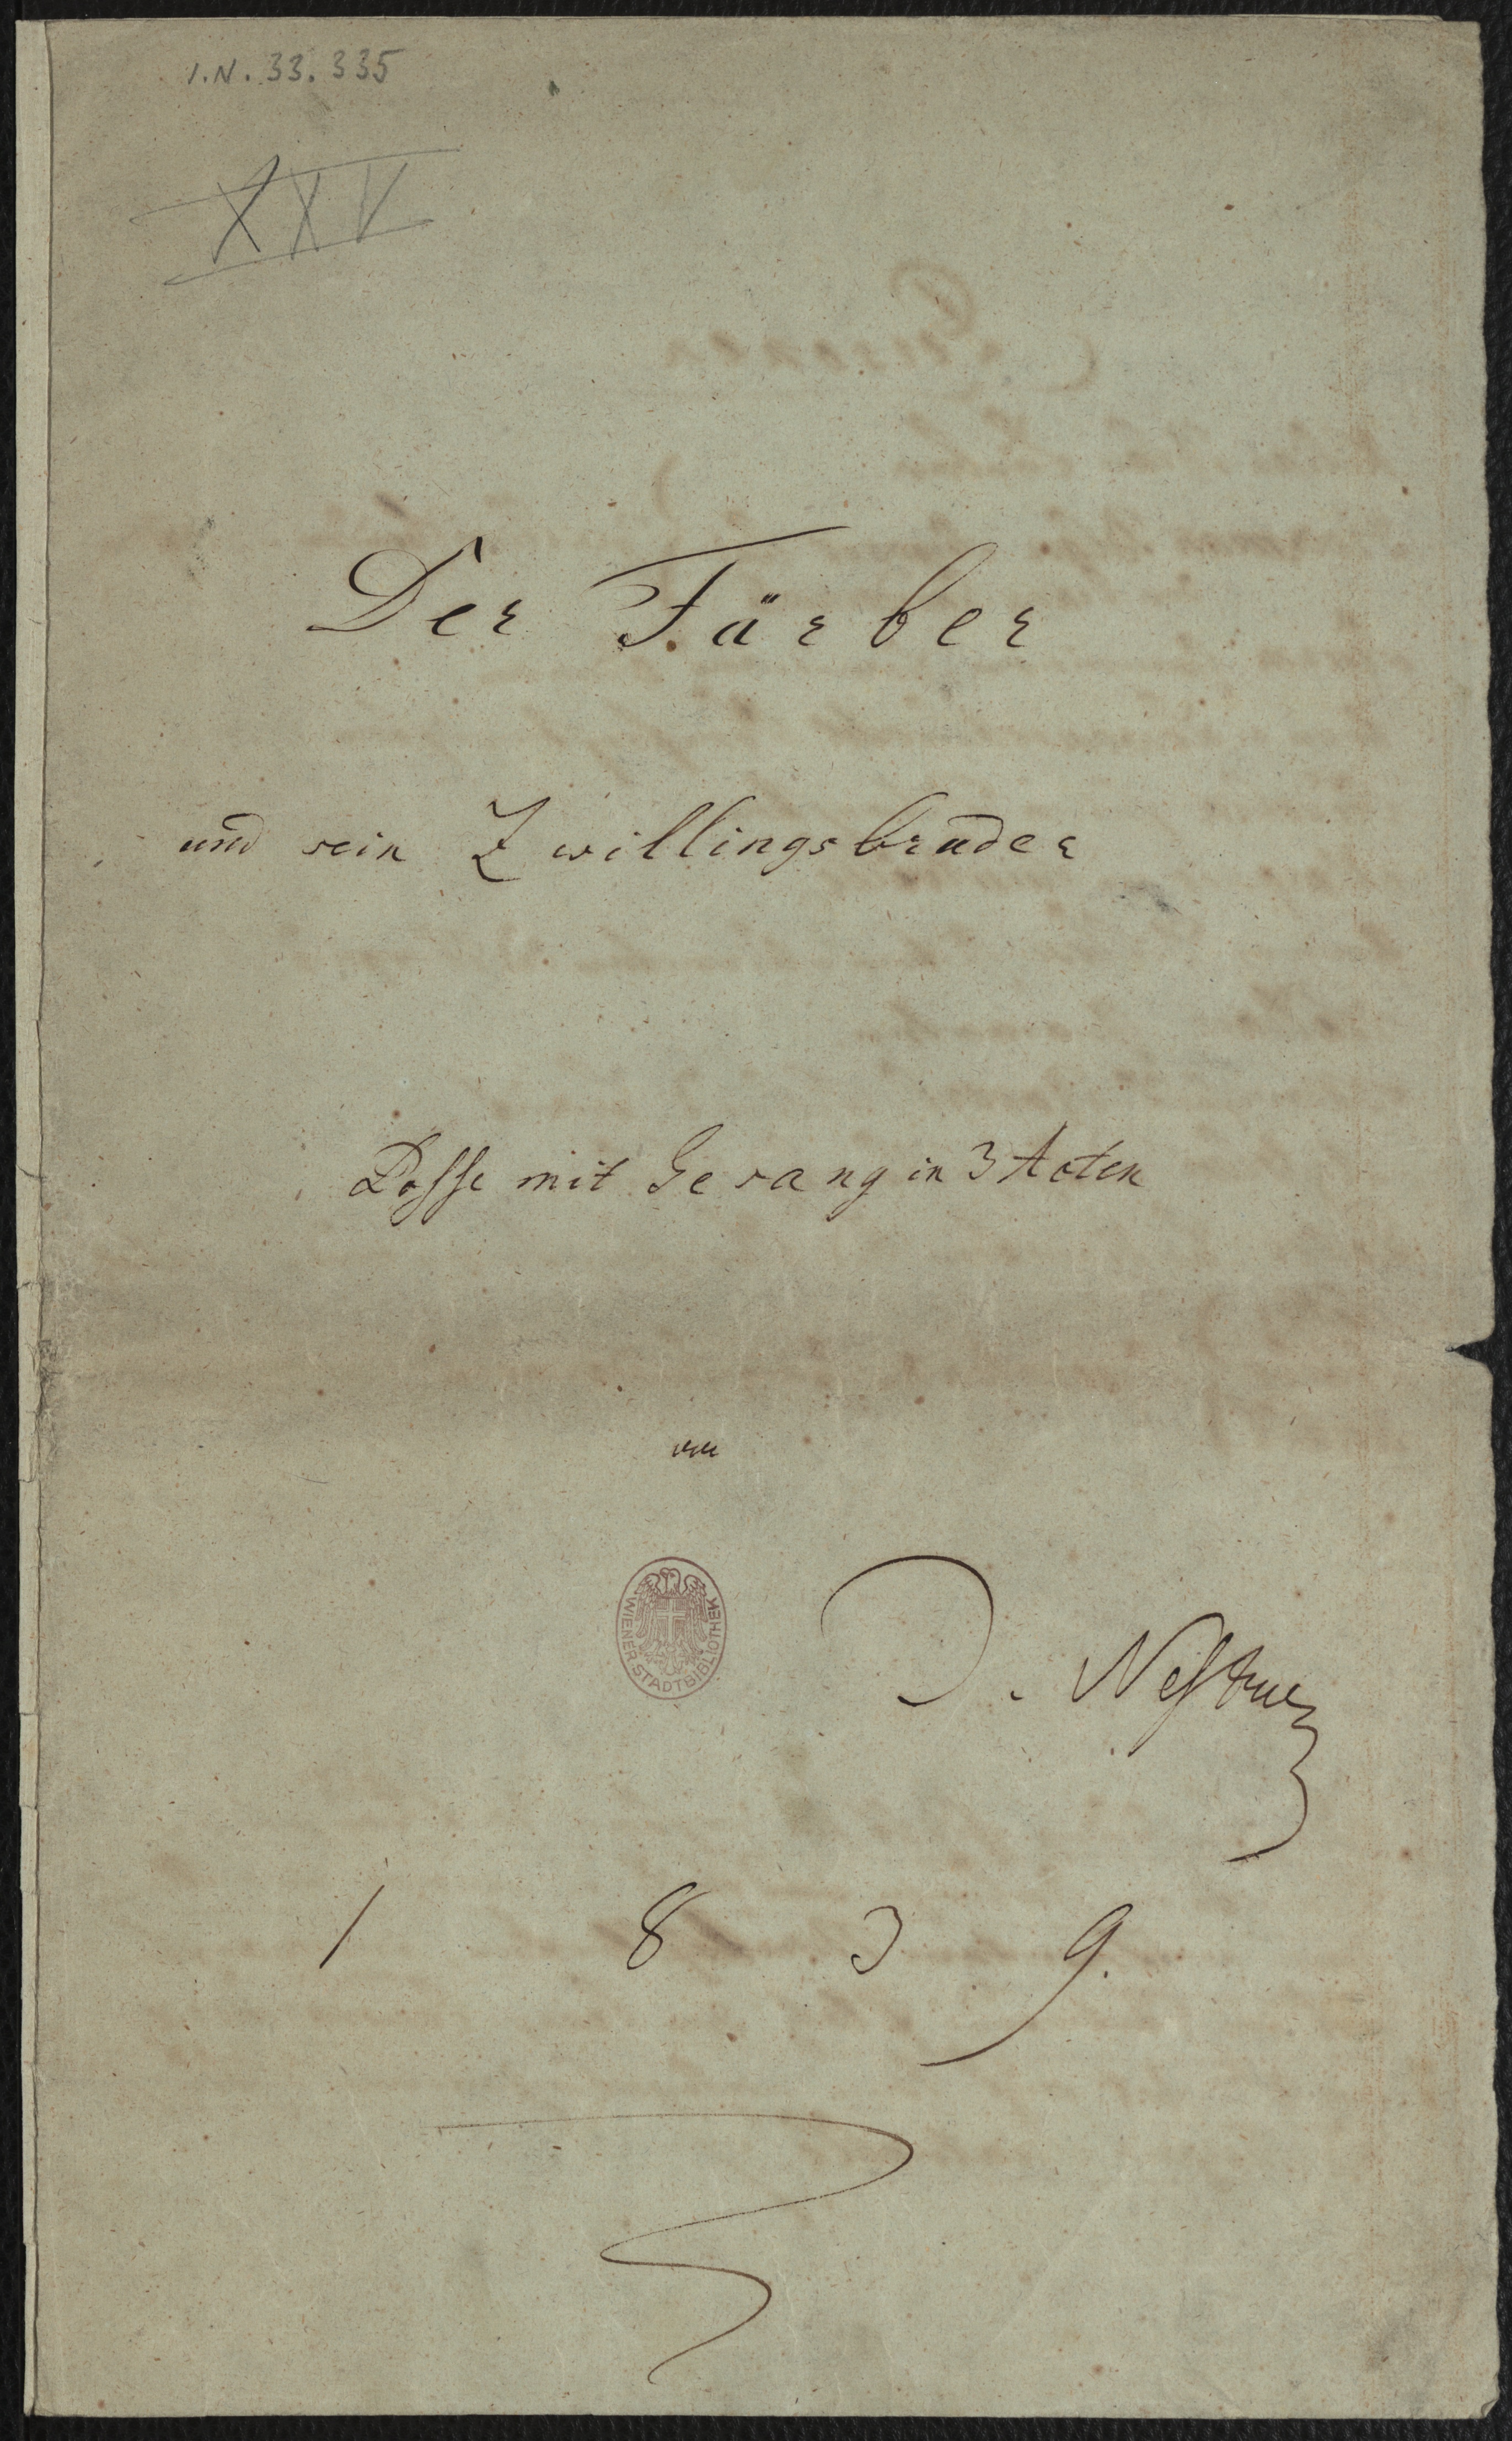 I.N. 33.335
XXV
Der Färber
und sein Zwillingsbruder
Posse mit Gesang in 3 Acten
von
WIENER STADTBIBLIOTHEK
J. Nestroy
1839.